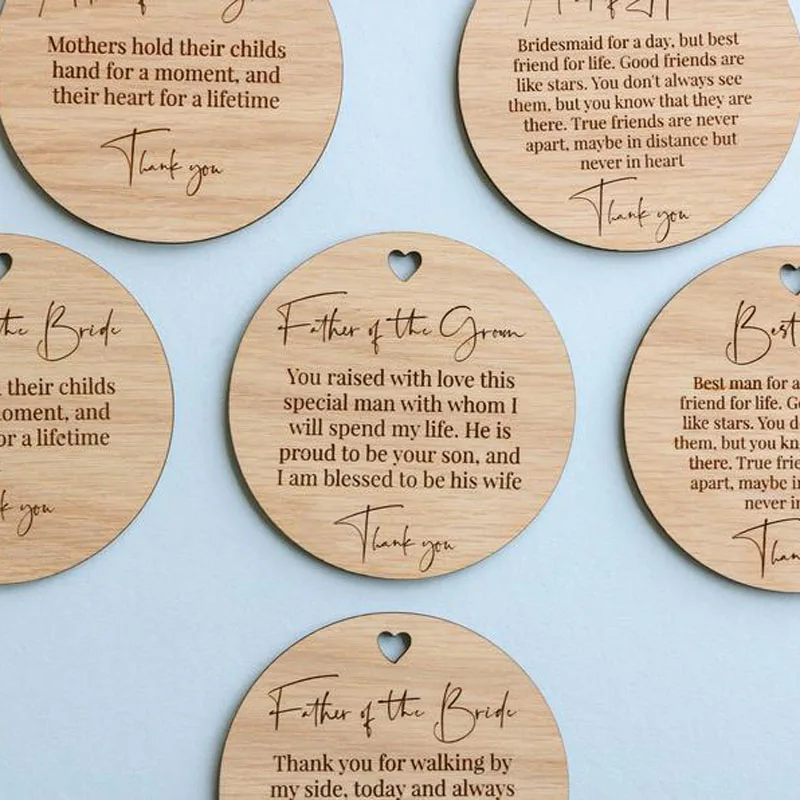 Mothers hold their childs
hand for a moment, and
their heart for a lifetime
Thank you
Bridesmaid for a day, but best
friend for life. Good friends are
like stars. You don't always see
them, but you know that they are
there. True friends are never
apart, maybe in distance but
never in heart
Thank you
the Bride
their childs
moment, and
or a lifetime
k you
Father of the Groom
You raised with love this
special man with whom I
will spend my life. He is
proud to be your son, and
I am blessed to be his wife
Thank you
Best
Best man for a
friend for life. G
like stars. You d
them, but you kn
there. True frie
apart, maybe i
never i
Than
Father of the Bride
Thank you for walking by
my side, today and always